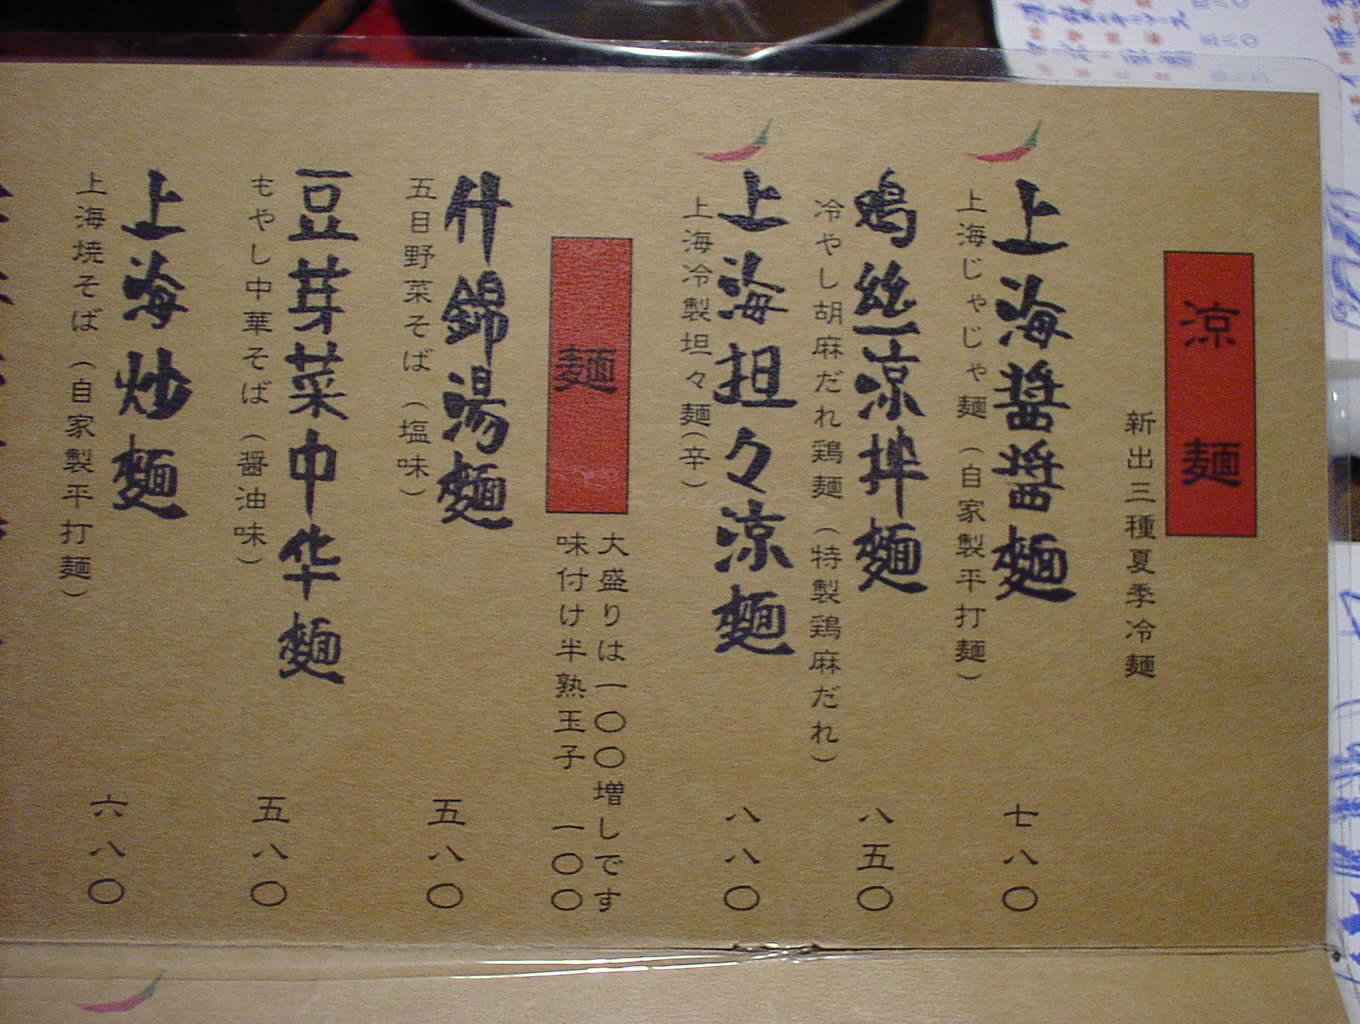 涼麺
新出三種夏季冷麺
上海醤醤麺
上海じゃじゃ麺（自家製平打麺）
七八〇
鸡丝凉拌麺
冷やし胡麻だれ鶏麺（特製鶏麻だれ）
八五〇
上海担々涼麺
上海冷製坦々麺（辛）
八八〇
麺
大盛りは一〇〇増しです
味付け半熟玉子 一〇〇
什錦湯麺
五目野菜そば（塩味）
五八〇
豆芽菜中华麺
もやし中華そば（醤油味）
五八〇
上海炒麺
上海焼そば（自家製平打麺）
六八〇